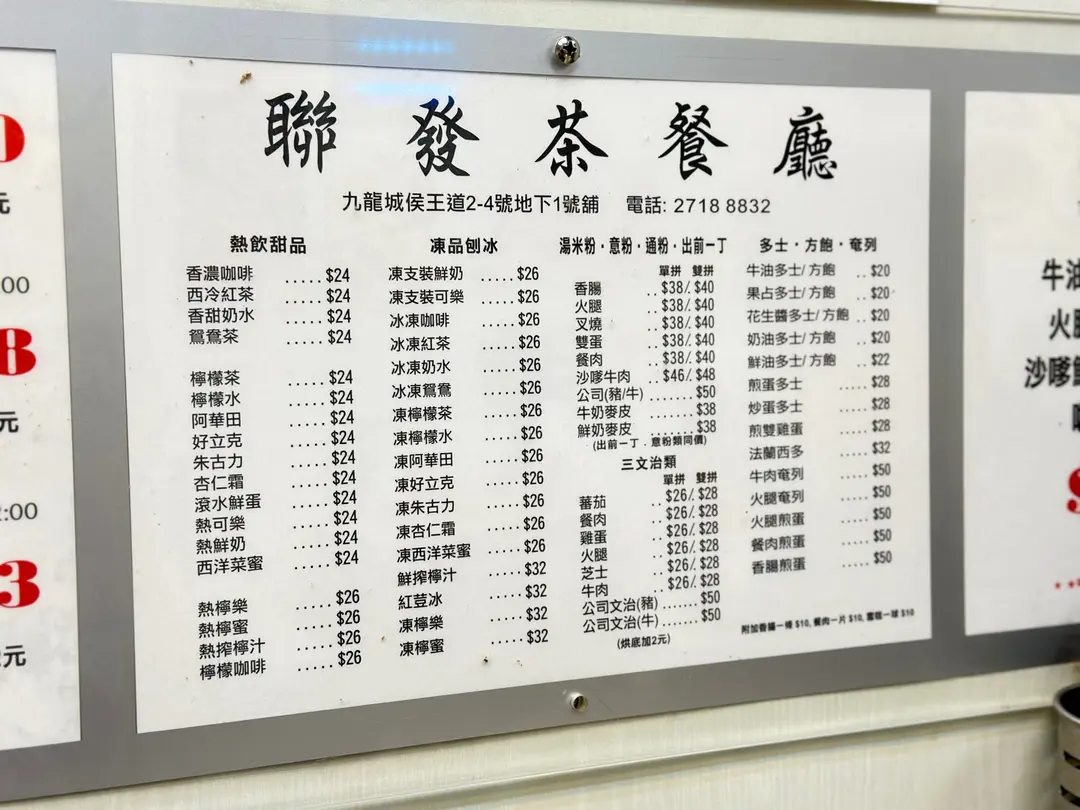 聯發茶餐廳
九龍城侯王道2-4號地下1號舖 電話: 2718 8832
熱飲甜品
香濃咖啡 .....$24
西冷紅茶 .....$24
香甜奶水 .....$24
鴛鴦茶 .....$24
檸檬茶 .....$24
檸檬水 .....$24
阿華田 .....$24
好立克 .....$24
朱古力 .....$24
杏仁霜 .....$24
滾水鮮蛋 .....$24
熱可樂 .....$24
熱鮮奶 .....$24
西洋菜蜜 .....$24
熱檸樂 .....$26
熱檸蜜 .....$26
熱搾檸汁 .....$26
檸檬咖啡 .....$26
凍品刨冰
凍支裝鮮奶 .....$26
凍支裝可樂 .....$26
冰凍咖啡 .....$26
冰凍紅茶 .....$26
冰凍奶水 .....$26
冰凍鴛鴦 .....$26
凍檸檬茶 .....$26
凍檸檬水 .....$26
凍阿華田 .....$26
凍好立克 .....$26
凍朱古力 .....$26
凍杏仁霜 .....$26
凍西洋菜蜜 .....$26
鮮搾檸汁 .....$32
紅荳冰 .....$32
凍檸樂 .....$32
凍檸蜜 .....$32
湯米粉·意粉·通粉·出前一丁
單拼 雙拼
香腸 ..$38/ $40
火腿 ..$38/ $40
叉燒 ..$38/ $40
雙蛋 ..$38/ $40
餐肉 ..$38/ $40
沙嗲牛肉 ..$46/ $48
公司(豬/牛) ........$50
牛奶麥皮 ........$38
鮮奶麥皮 ........$38
(出前一丁．意粉類同價)
三文治類
單拼 雙拼
蕃茄 ..$26/ $28
餐肉 ..$26/ $28
雞蛋 ..$26/ $28
火腿 ..$26/ $28
芝士 ..$26/ $28
牛肉 ..$26/ $28
公司文治(豬) .......$50
公司文治(牛) .......$50
(烘底加2元)
多士·方飽·奄列
牛油多士/方飽 ..$20
果占多士/方飽 ..$20
花生醬多士/方飽 ..$20
奶油多士/方飽 ..$20
鮮油多士/方飽 ..$22
煎蛋多士 .....$28
炒蛋多士 .....$28
煎雙雞蛋 .....$28
法蘭西多 .....$32
牛肉奄列 .....$50
火腿奄列 .....$50
火腿煎蛋 .....$50
餐肉煎蛋 .....$50
香腸煎蛋 .....$50
附加香腸一條 $10, 餐肉一片 $10, 雪糕一球 $10